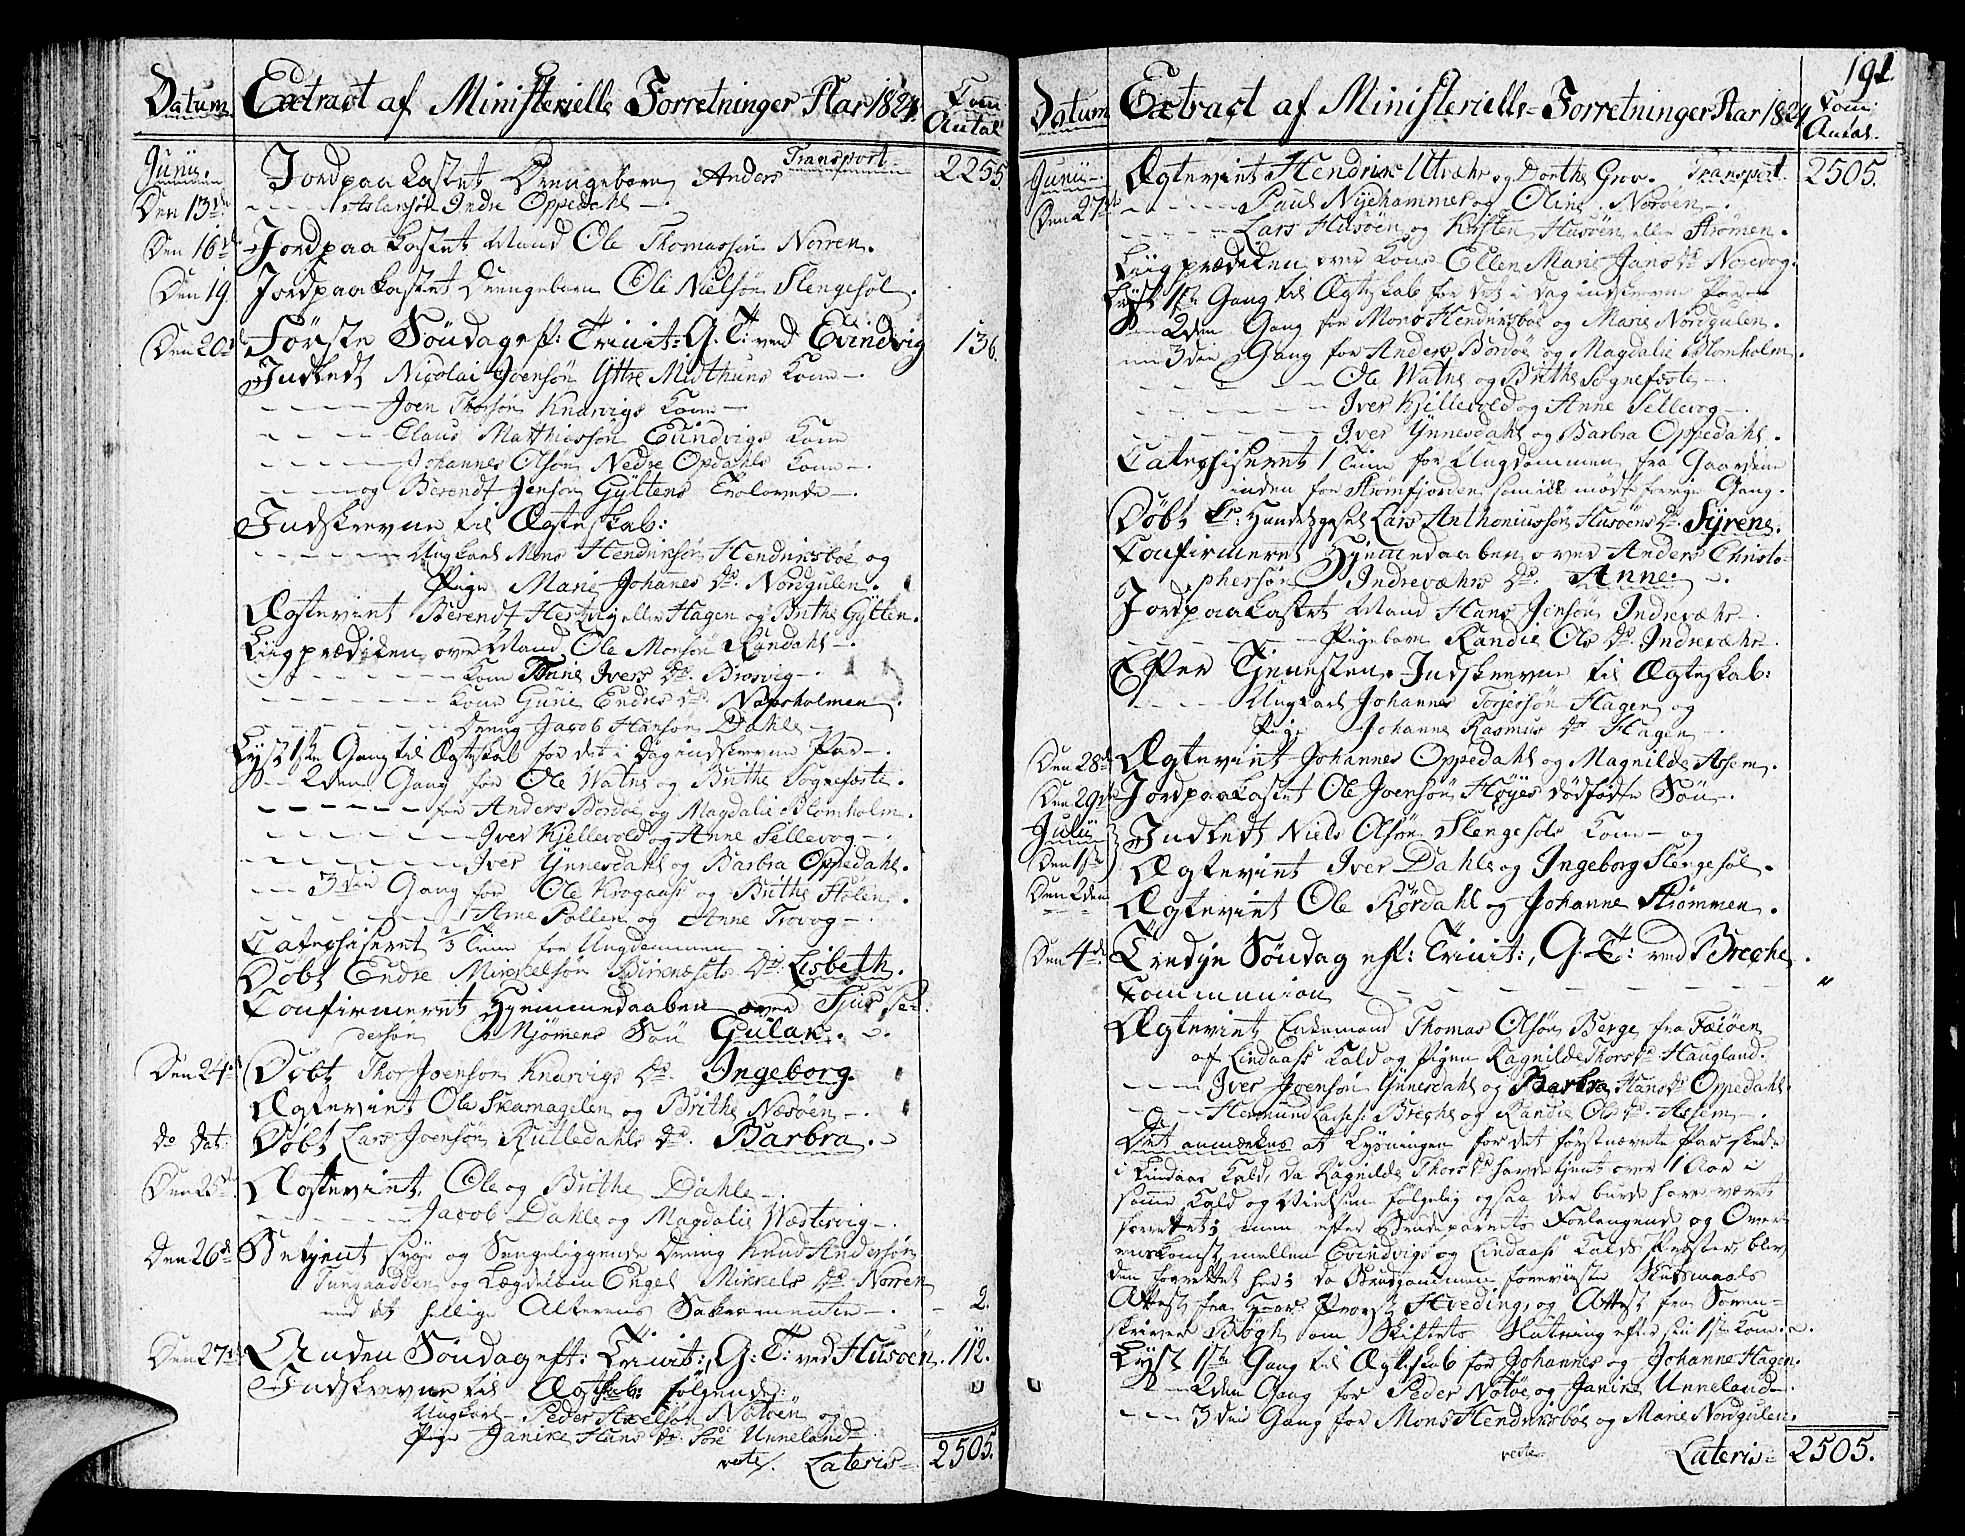 Datum
Extract af Ministerielle Forretninger Aar 1824.
Com:
Antal
Junii.
Transport
2255
Jordpaakastet Drengebarn Anders
Den 13de
Aslansøn Indre Oppedahl –.
Den 16de
Jordpaakastet Mand Ole Thomassøn Norren.
Den 19
Jordpaakastet Drengebarn Ole Nielsøn Slengesøl.
Den 20de
Første Søndag eft: Trinit: G. T: ved Evindvig
136.
Indledt Nicolai Joensøn Yttre Midthuns Kone –.
– – – – Joen Thorsøn Knarvigs Kone –
– – – – Claus Matthiassøn Eiindvigs Kone
– – – – Johannes Olsøn Nedre Opdahls Kone –.
– – – og Berendt Jensøn Gyltens Trolovede –.
Indskrevne til Ægteskab:
– – – – Ungkarl Mons Hendriksøn Hendriksboe og
Pige Marie Johannes Dr. Nordgulen.
Ægteviet Berendt Hertvig eller Hagen og Brithe Gylten.
Liigprædiken over Mand Ole Monsøn Randahl –.
– – – – – – Kone Anne Ivers Dr. Brosvig –.
– – – – – – Kone Gurie Endres Dr. Naversholmen.
– – – – – – Dreng Jacob Hansøn Dahle –
Lyst 1ste Gang til Ægteskab for det i Dag indskrevne Par –.
– – 2den Gang for Ole Watne og Brithe Sognefæste.
– – – – – – for Anders Bordøe og Magdalie Blomholm.
– – – – – – Iver Kjellevold og Anne Sellevog –.
– – – – – – Iver Ynnesdahl og Barbra Oppedahl.
– – 3die Gang for Ole Krogaass og Brithe Holen.
– – – – – – Arne Sollen og Anne Trovog –.
Catechiseret 2/3 Time for Ungdommen –.
Døbt Endre Mikkelsøn Birknæsets Dr. Lisbeth.
Confirmeret Hjemmedaaben over Siur Peder
dersøn Mjømens Søn Gulak.
Den 24de
Døbt Thor Joensøn Knarvigs Dr. Ingeborg.
Ægteviet Ole Skarnagelen og Brithe Næsøen –.
do Dat:
Døbt Lars Joensøn Rutledahls Dr. Barbra.
Den 25de
Ægteviet Ole og Brithe Dahle –.
– – – – – Jacob Dahle og Magdalie Wæstervig –.
Den 26de
Betjent syge og Sengeliggende Dreng Knud Andersøn
og Lægdelem Engel Mikkels Dr. Norren
med det hellige Alterens Sakramente –.
2.
Den 27de
Anden Søndag eft: Trinit:, G: T: ved Husøen.
112.
Indskrevne til Ægteskab følgende:
Ungkarl – Peder Axelsøn Notøen og
Pige Janike Hans Dr. Søre Unneland –.
verte.
Lateris –
2505.
192
Datum
Extract af Ministerielle Forretninger Aar 1824
Com:
Antal.
Junii
Ægteviet Hendrik Utvæhr og Dorthe Grov.
Transport.
2505.
Den 27de
– – – – Paul Nyehammer og Oline Norøen –.
– – – – Lars Husøen og Kirsten Husøen eller Strømen.
Liigprædiken over Kone Ellen Marie Jans Dr. Norevog.
Lyst 1ste Gang til Ægteskab for det i Dag indskrevne Par –
– 2den Gang for Mons Hendriksboe og Marie Nordgulen.
– 3die Gang for Anders Bordøe og Magdalie Blomholm.
– – – – – – Ole Watne og Brithe Sognefæste –.
– – – – – – Iver Kjellevold og Anne Sellevog –.
– – – – – – Iver Ynnesdahl og Barbra Oppedahl.
Catechiseret 1 Time for Ungdommen fra Gaardene
inden for Strømfjorden som ikke mødte forrige Gang.
Døbt Hr: Handelsgast Lars Anthoniussøn Husøens Dr. Syrene.
Confirmeret Hjemmedaaben over Anders Christo-
phersøn Indrevæhrs Dr. Anne.
Jordpaakastet Mand Hans Jensøn Indrevæhr –.
– – – – – Pigebarn Randie Ols Dr. Indrevæhr –
Efter Tjenesten Indskrevne til Ægteskab:
– – – – Ungkarl Johannes Torjersøn Hagen og
Pige Johanne Rasmus Dr. Hagen –.
Den 28de
Ægteviet Johannes Oppedahl og Magnilde Assem.
Den 29de
Jordpaakastet Ole Joensøn Høyes dødfødte Søn –.
Julii
Indledt Niels Olsøn Slengesøls Kone – og
Den 1ste
Ægteviet Iver Dahle og Ingeborg Slengesøl.
Den 2den
Ægteviet Ole Rørdahl og Johanne Strømmen.
Den 4de.
Tredje Søndag eft: Trinit:, G. T: ved Breche.
Communion – – – – – – – –
"
Ægteviet Enkemand Thomas Olsøn Berge fra Fæiøen
af Lindaass Kald og Pigen Ragnilde Thors Dr. Haugland.
– – – Iver Joensøn Ynnesdahl og Barbra Hans Dr. Oppedahl.
– – – Hermund Lasses: Breche og Randie Ols Dr. Assem –.
Det anmærkes at Lysningen for det førstnævnte Par skede
i Lindaas Kald, da Ragnilde Thors Dr. havde tjent over 1 Aar i
samme Kald og Vielsen følgelig ogsaa der burde have været
forrettet; men efter Brudeparrets Forlangende og Over-
enskomst mellem Evindvigs og Lindaass Kalds Præster, blev
den forrettet her; da Brudgommen foreviiste Skudsmaals
Attest fra Provst Hveding, og Attest fra Soren-
skriver Bøgh om Skiftets Slutning efter sin 1ste Kone.
Lyst 1ste Gang til Ægteskab for Johannes og Johanne Hagen.
– – 2den Gang for Peder Notøe og Janike Unneland –.
– – 3die Gang for Mons Hendriksboe og Marie Nordgulen.
verte
Lateris –
2505.